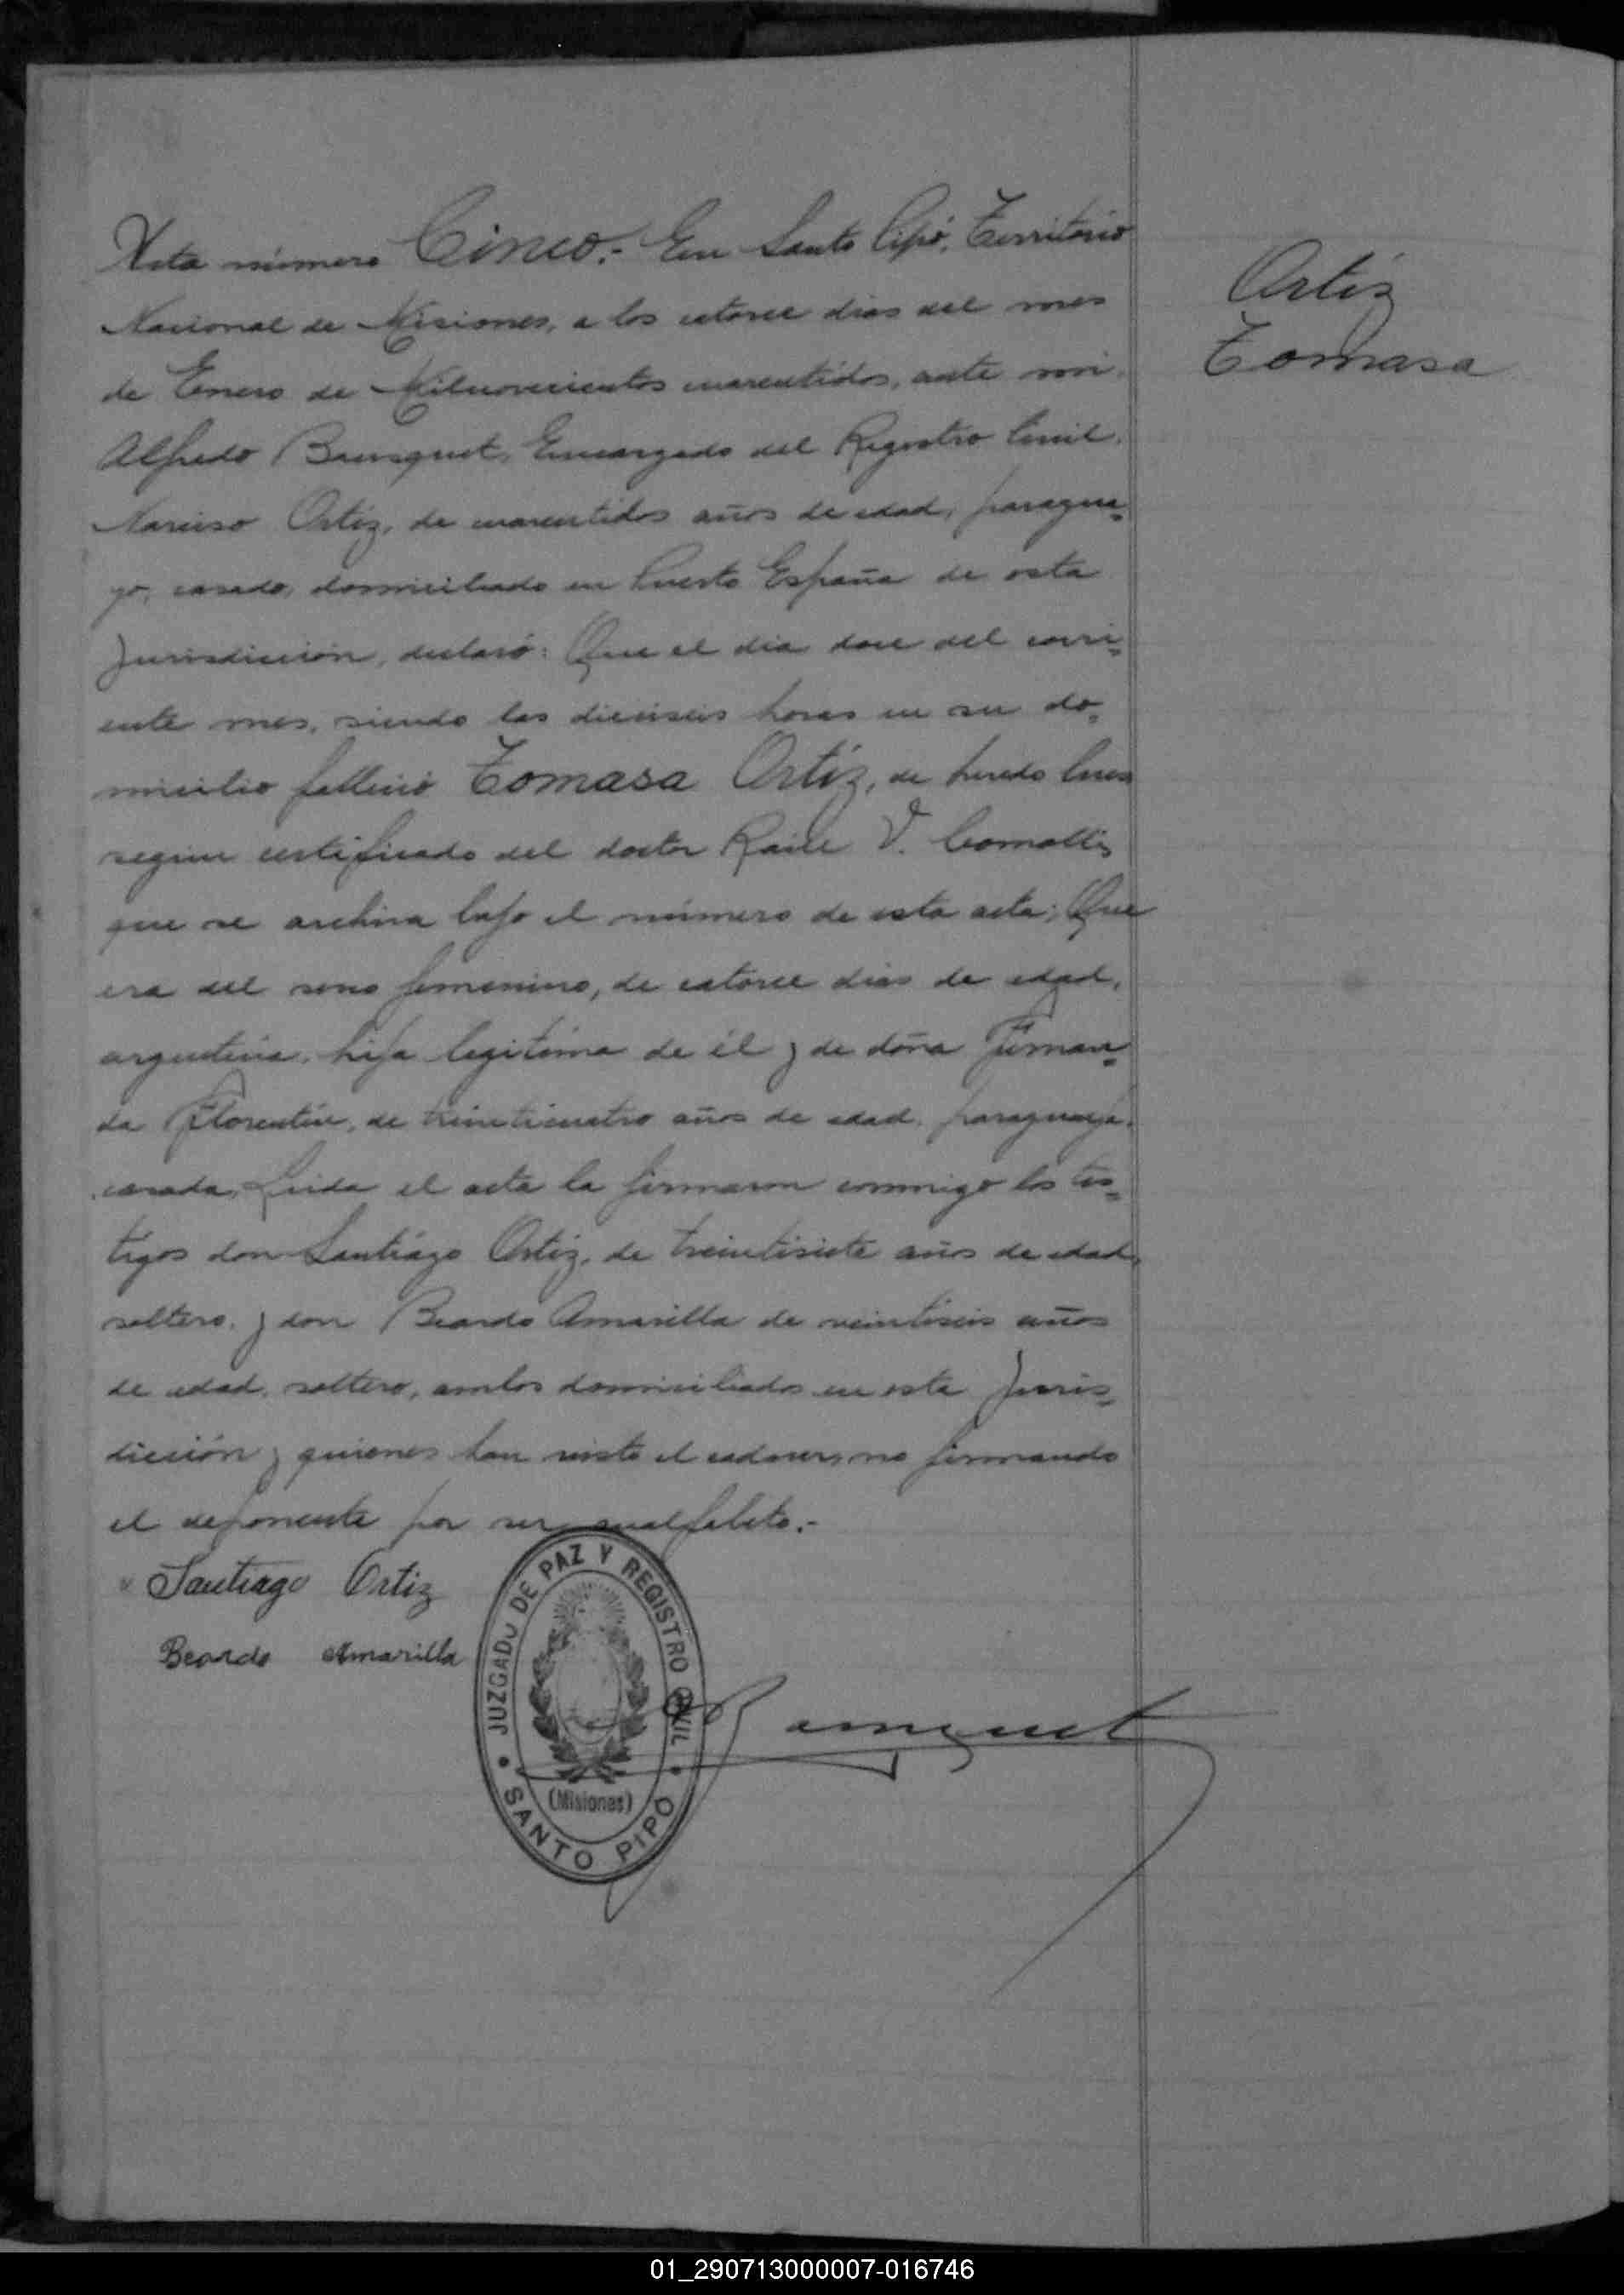 Acta número Cinco.- En Santo Pipó, Territorio
Nacional de Misiones, a los catorce dias del mes
de Enero de Milnovecientos cuarentidos, ante mi.
Alfredo Bousquet, Encargado del Registro Civil.
Narciso Ortiz, de cuarentidos años de edad, paragua-
yo, casado, domiciliado en Puerto España de esta
Jurisdicción, declaró: Que el dia doce del corri-
ente mes, siendo las dieciseis horas en su do-
micilio falleció Tomasa Ortíz, de
según certificado del doctor Raúl V.
que se archiva bajo el número de esta acta; Que
era del sexo femenino, de catorce dias de edad,
argentina, hija legitima de él y de doña
da Florentín, de treinticuatro años de edad, paraguaya,
casada, Leida el acta la firmaron conmigo los tes-
tigos don Santiago Ortiz, de treintisiete años de edad,
soltero, y don Beardo Amarilla de veintiseis años
de edad, soltero, ambos domiciliados en esta Juris-
dicción y quienes han visto el cadaver, no firmando
el deponente por ser analfabeto.-
Ortiz
Tomasa
Santiago Ortiz
Beardo Amarilla
JUZGADO DE PAZ Y REGISTRO CIVIL
(Misiones)
SANTO PIPÓ
01_290713000007-016746